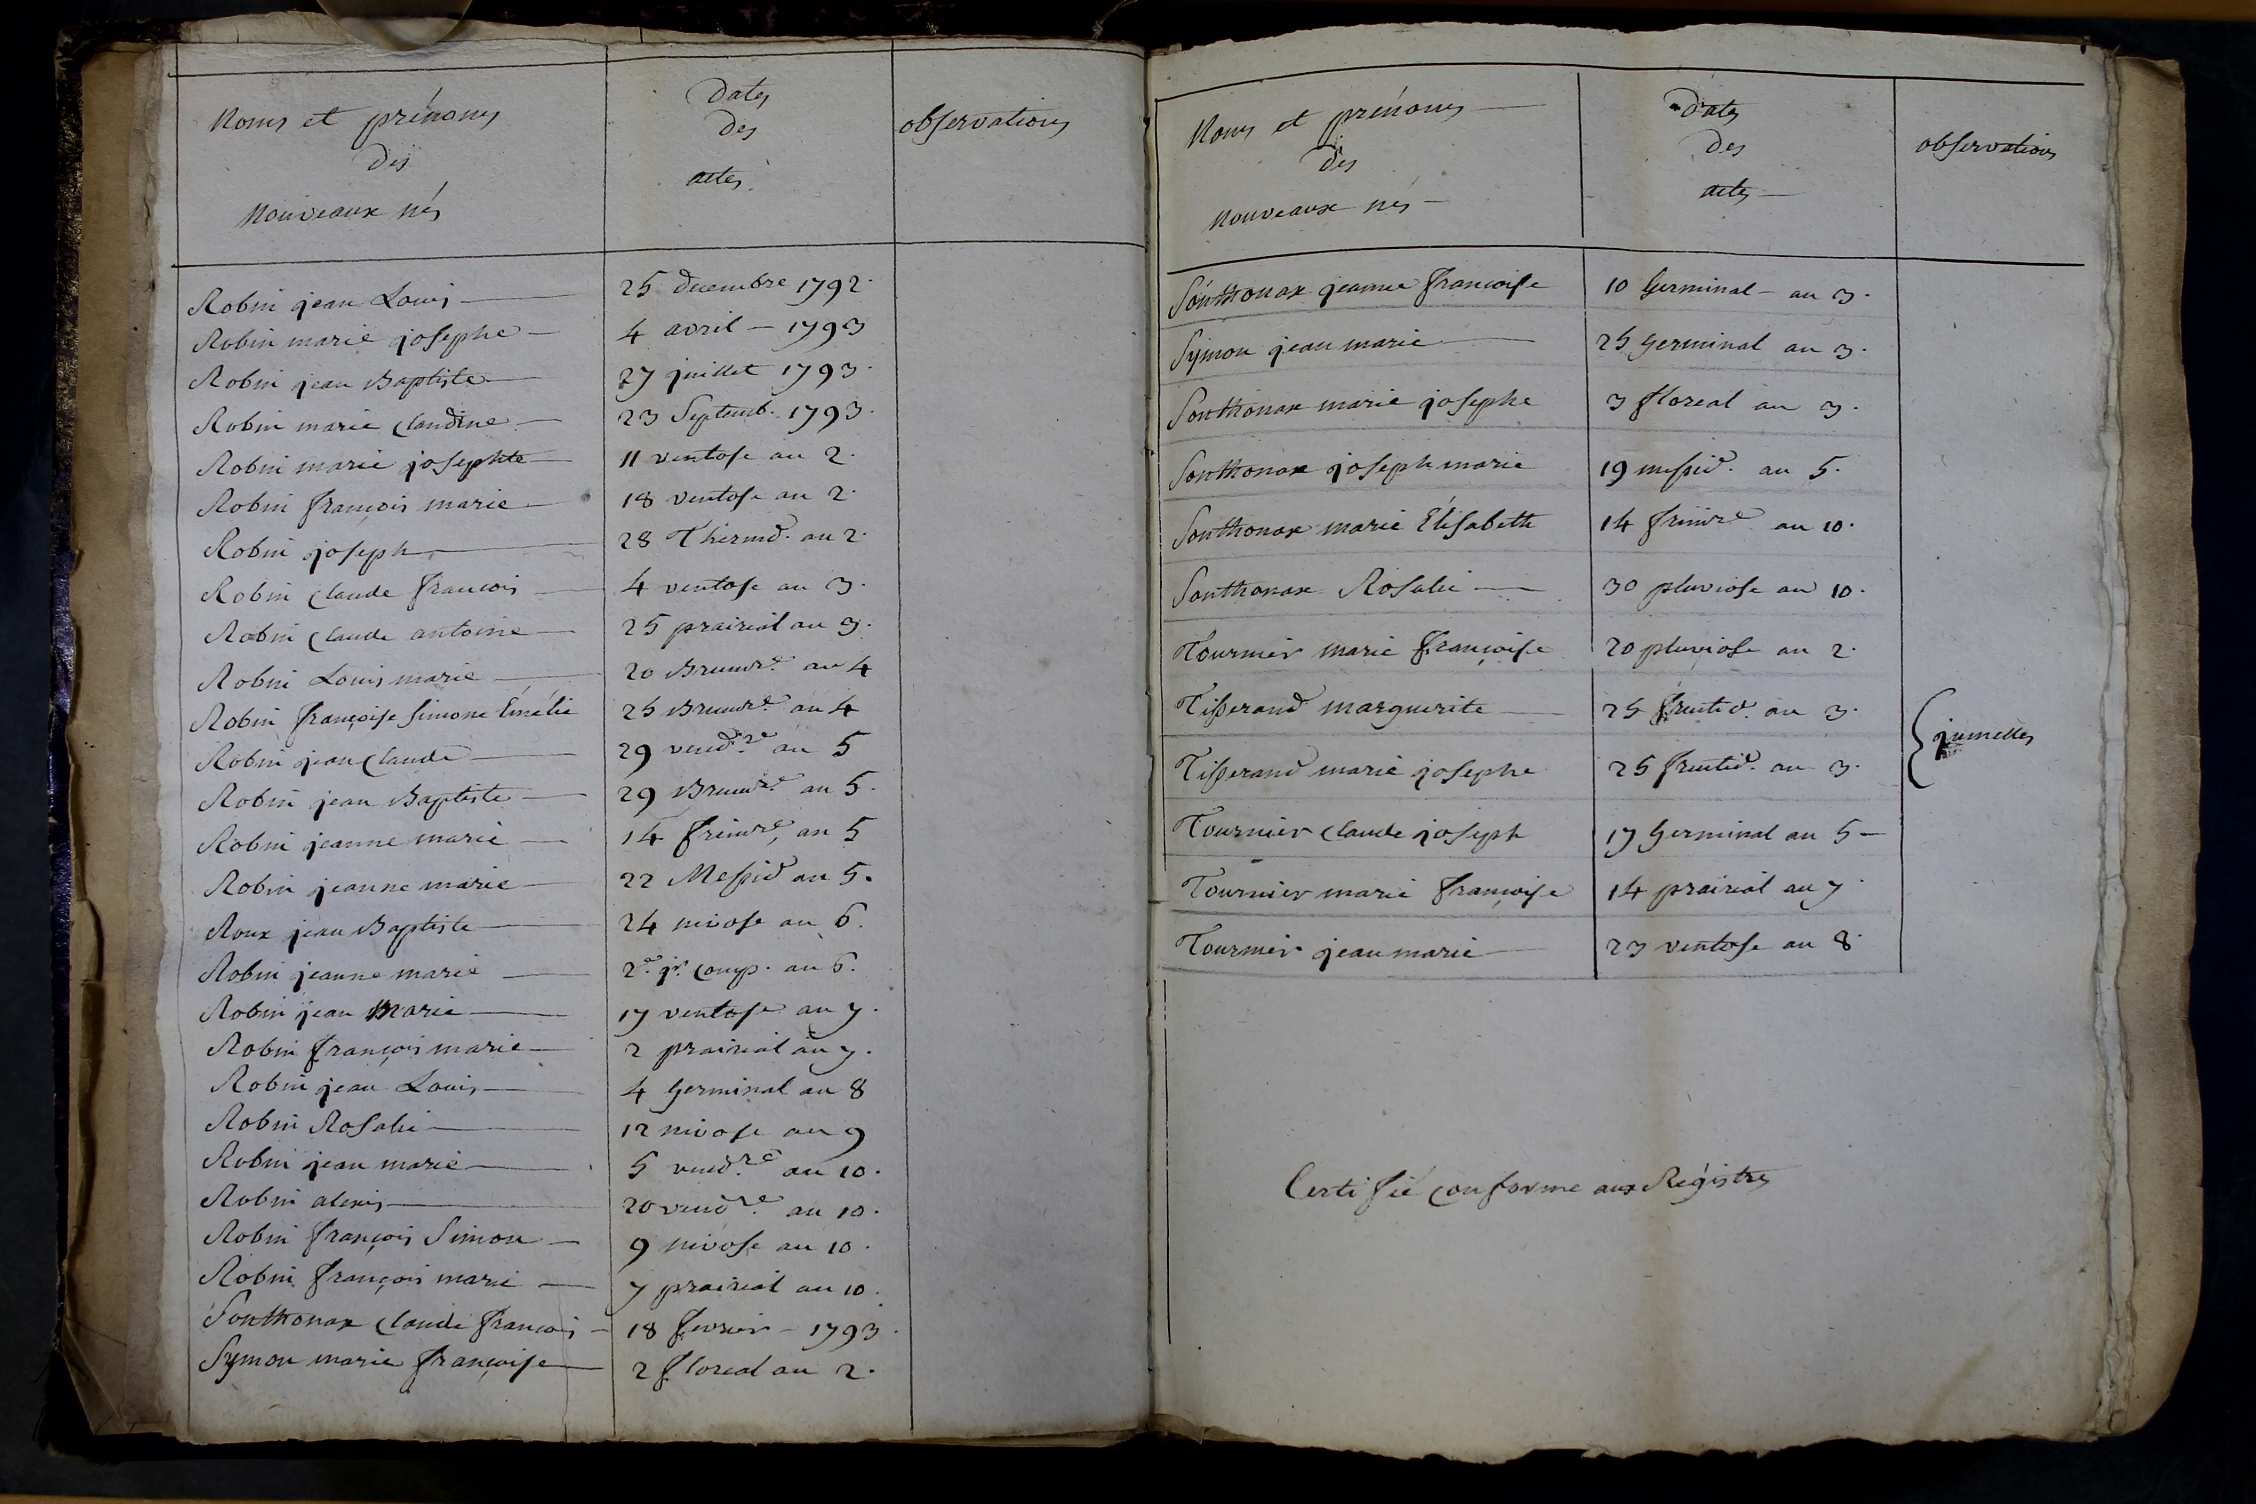 Noms et prénoms
des
Nouveaux nés
Dates
des
actes
observations
Robin jean Louis 25 decembre 1792.
Robin marie josephe 4 avril 1793
Robin jean Baptiste 27 juillet 1793.
Robin marie Claudine 23 Septemb. 1793.
Robin marie josephte 11 ventose an 2.
Robin françois marie 18 ventose an 2.
Robin joseph 28 Thermd. an 2.
Robin Claude francois 4 ventose an 3.
Robin Claude antoine 25 prairial an 3.
Robin Louis marie 20 Brumre. an 4
Robin françoise Simone Emélie 25 Brumre. an 4
Robin jean Claude 29 vendre. an 5
Robin jean Baptiste 29 Brumre. an 5.
Robin jeanne marie 14 frimre. an 5
Robin jeanne marie 22 Messid an 5.
Roux jean Baptiste 24 nivose an 6.
Robin jeanne marie 2e. jr. comp. an 6.
Robin jean Marie 17 ventose an 7.
Robin françois marie 2 prairial an 7.
Robin jean Louis 4 Germinal an 8
Robin Rosalie 12 nivose an 9
Robin jean marie 5 vendre. an 10.
Robin alexis 20 vendre. an 10.
Robin françois Simon 9 nivose an 10.
Robin françois marie 7 prairial an 10.
Sonthonax Claude françois 18 fevrier 1793.
Symon marie françoise 2 floreal an 2.
Noms et prénoms
des
nouveaux nés
Dates
des
actes
observations
Sonthonax jeanne francoise 10 Germinal an 3.
Symon jean marie 25 Germinal an 3.
Sonthonax marie josephe 3 floreal an 3.
Sonthonax joseph marie 19 messid. an 5.
Sonthonax marie Elisabeth 14 frimre an 10.
Sonthonax Rosalie 30 pluviose an 10.
Tournier marie françoise 20 pluviose an 2.
Tisserand marguerite 25 fructid. an 3.
jumelles
Tisserand marie josephe 25 fructid. an 3.
Tournier Claude joseph 17 Germinal an 5
Tournier marie françoise 14 prairial an 7
Tournier jean marie 23 ventose an 8.
Certifié conforme aux Régistres